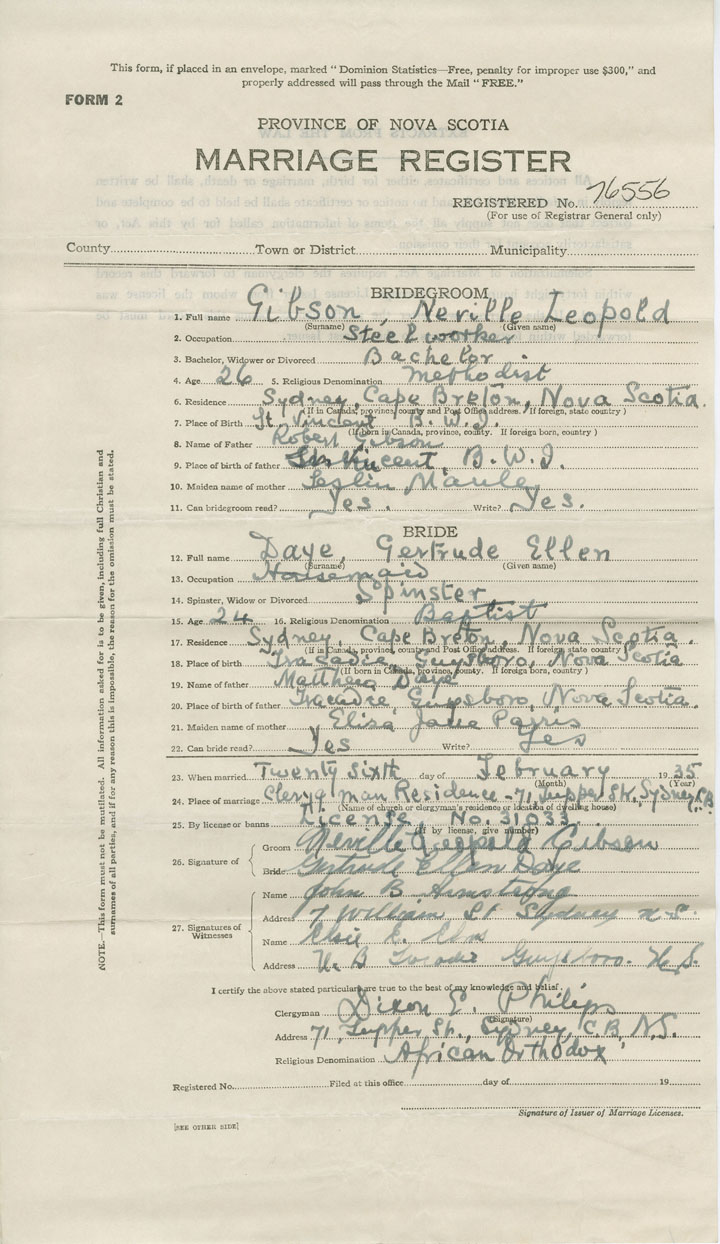 This form, if placed in an envelope, marked "Dominion Statistics—Free, penalty for improper use $300," and
properly addressed will pass through the Mail "FREE."
FORM 2
PROVINCE OF NOVA SCOTIA
MARRIAGE REGISTER
REGISTERED No. 76556
(For use of Registrar General only)
County Town or District Municipality
BRIDEGROOM
1. Full name Gibson, Neville Leopold
(Surname) (Given name)
2. Occupation Steel worker
3. Bachelor, Widower or Divorced Bachelor.
4. Age 26 5. Religious Denomination Methodist
6. Residence Sydney, Cape Breton, Nova Scotia.
(If in Canada, province, county and Post Office address. If foreign, state country)
7. Place of Birth St. Vincent B.W.I.
(If born in Canada, province, county. If foreign born, country)
8. Name of Father Robert Gibson
9. Place of birth of father Vincent, B.W.I.
10. Maiden name of mother
11. Can bridegroom read? Yes. Write? Yes.
BRIDE
12. Full name Daye, Gertrude Ellen
(Surname) (Given name)
13. Occupation Housemaid
14. Spinster, Widow or Divorced Spinster
15. Age 24 16. Religious Denomination Baptist
17. Residence Sydney, Cape Breton, Nova Scotia.
(If in Canada, province, county and Post Office address. If foreign state country)
18. Place of birth Tracadie, Guysboro, Nova Scotia
(If born in Canada, province, county. If foreign born, country)
19. Name of father Matthew Daye
20. Place of birth of father Tracadie, Guysboro, Nova Scotia.
21. Maiden name of mother Eliza Jane Parris
22. Can bride read? Yes Write? Yes
23. When married Twenty Sixth day of February 1935
(Month) (Year)
24. Place of marriage Clergyman Residence - 71, Tupper St., Sydney, C.B.
(Name of church or clergyman's residence or location of dwelling house)
25. By license or banns License, No. 31033
(If by license, give number)
26. Signature of
Groom Neville Leopold Gibson
Bride Gertrude Ellen Daye
27. Signatures of Witnesses
Name John B. Armstrong
Address 7 William St Sydney N.S.
Name Elsie E.
Address Guysboro. N.S.
I certify the above stated particulars are true to the best of my knowledge and belief.
Clergyman Dixon E. Philips
(Signature)
Address 71, Tupper St., Sydney, C.B, N.S.
Religious Denomination African Orthodox
Registered No. Filed at this office day of 19
Signature of Issuer of Marriage Licenses.
[SEE OTHER SIDE]
NOTE.—This form must not be mutilated. All information asked for is to be given, including full Christian and
surnames of all parties, and if for any reason this is impossible, the reason for the omission must be stated.